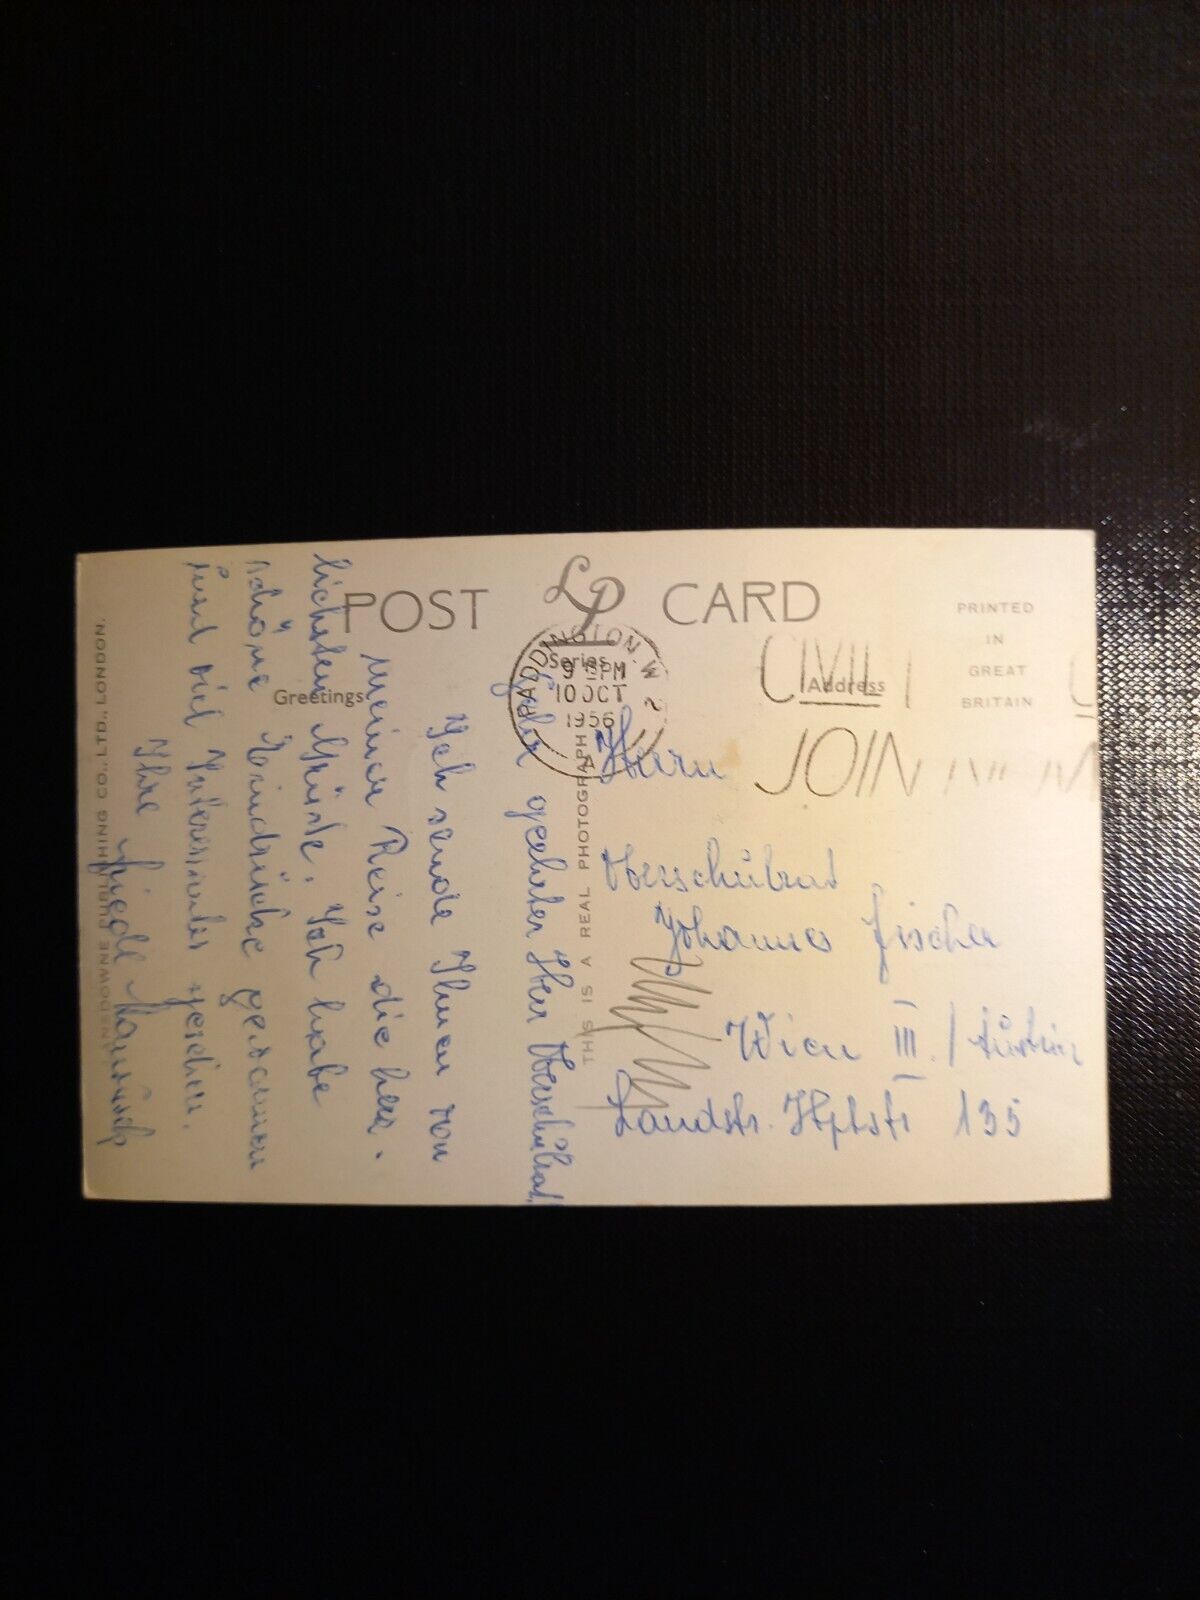 POST LP CARD
Series
Greetings
Address
PRINTED
IN
GREAT
BRITAIN
PADDINGTON W.2
9 15 PM
10 OCT
1956
CIVIL
JOIN
THIS IS A REAL PHOTOGRAPH
LANSDOWNE PUBLISHING CO., LTD., LONDON.
Sehr geehrter Herr Oberschulrat!
Ich sende Ihnen von
meiner Reise die herz-
lichsten Grüße. Ich habe
schöne Eindrücke gewonnen
und viel Interessantes gesehen.
Ihre
Friedl
Herrn
Oberschulrat
Johannes Fischer
Wien III. / Austria
Landstr. Hptstr 135